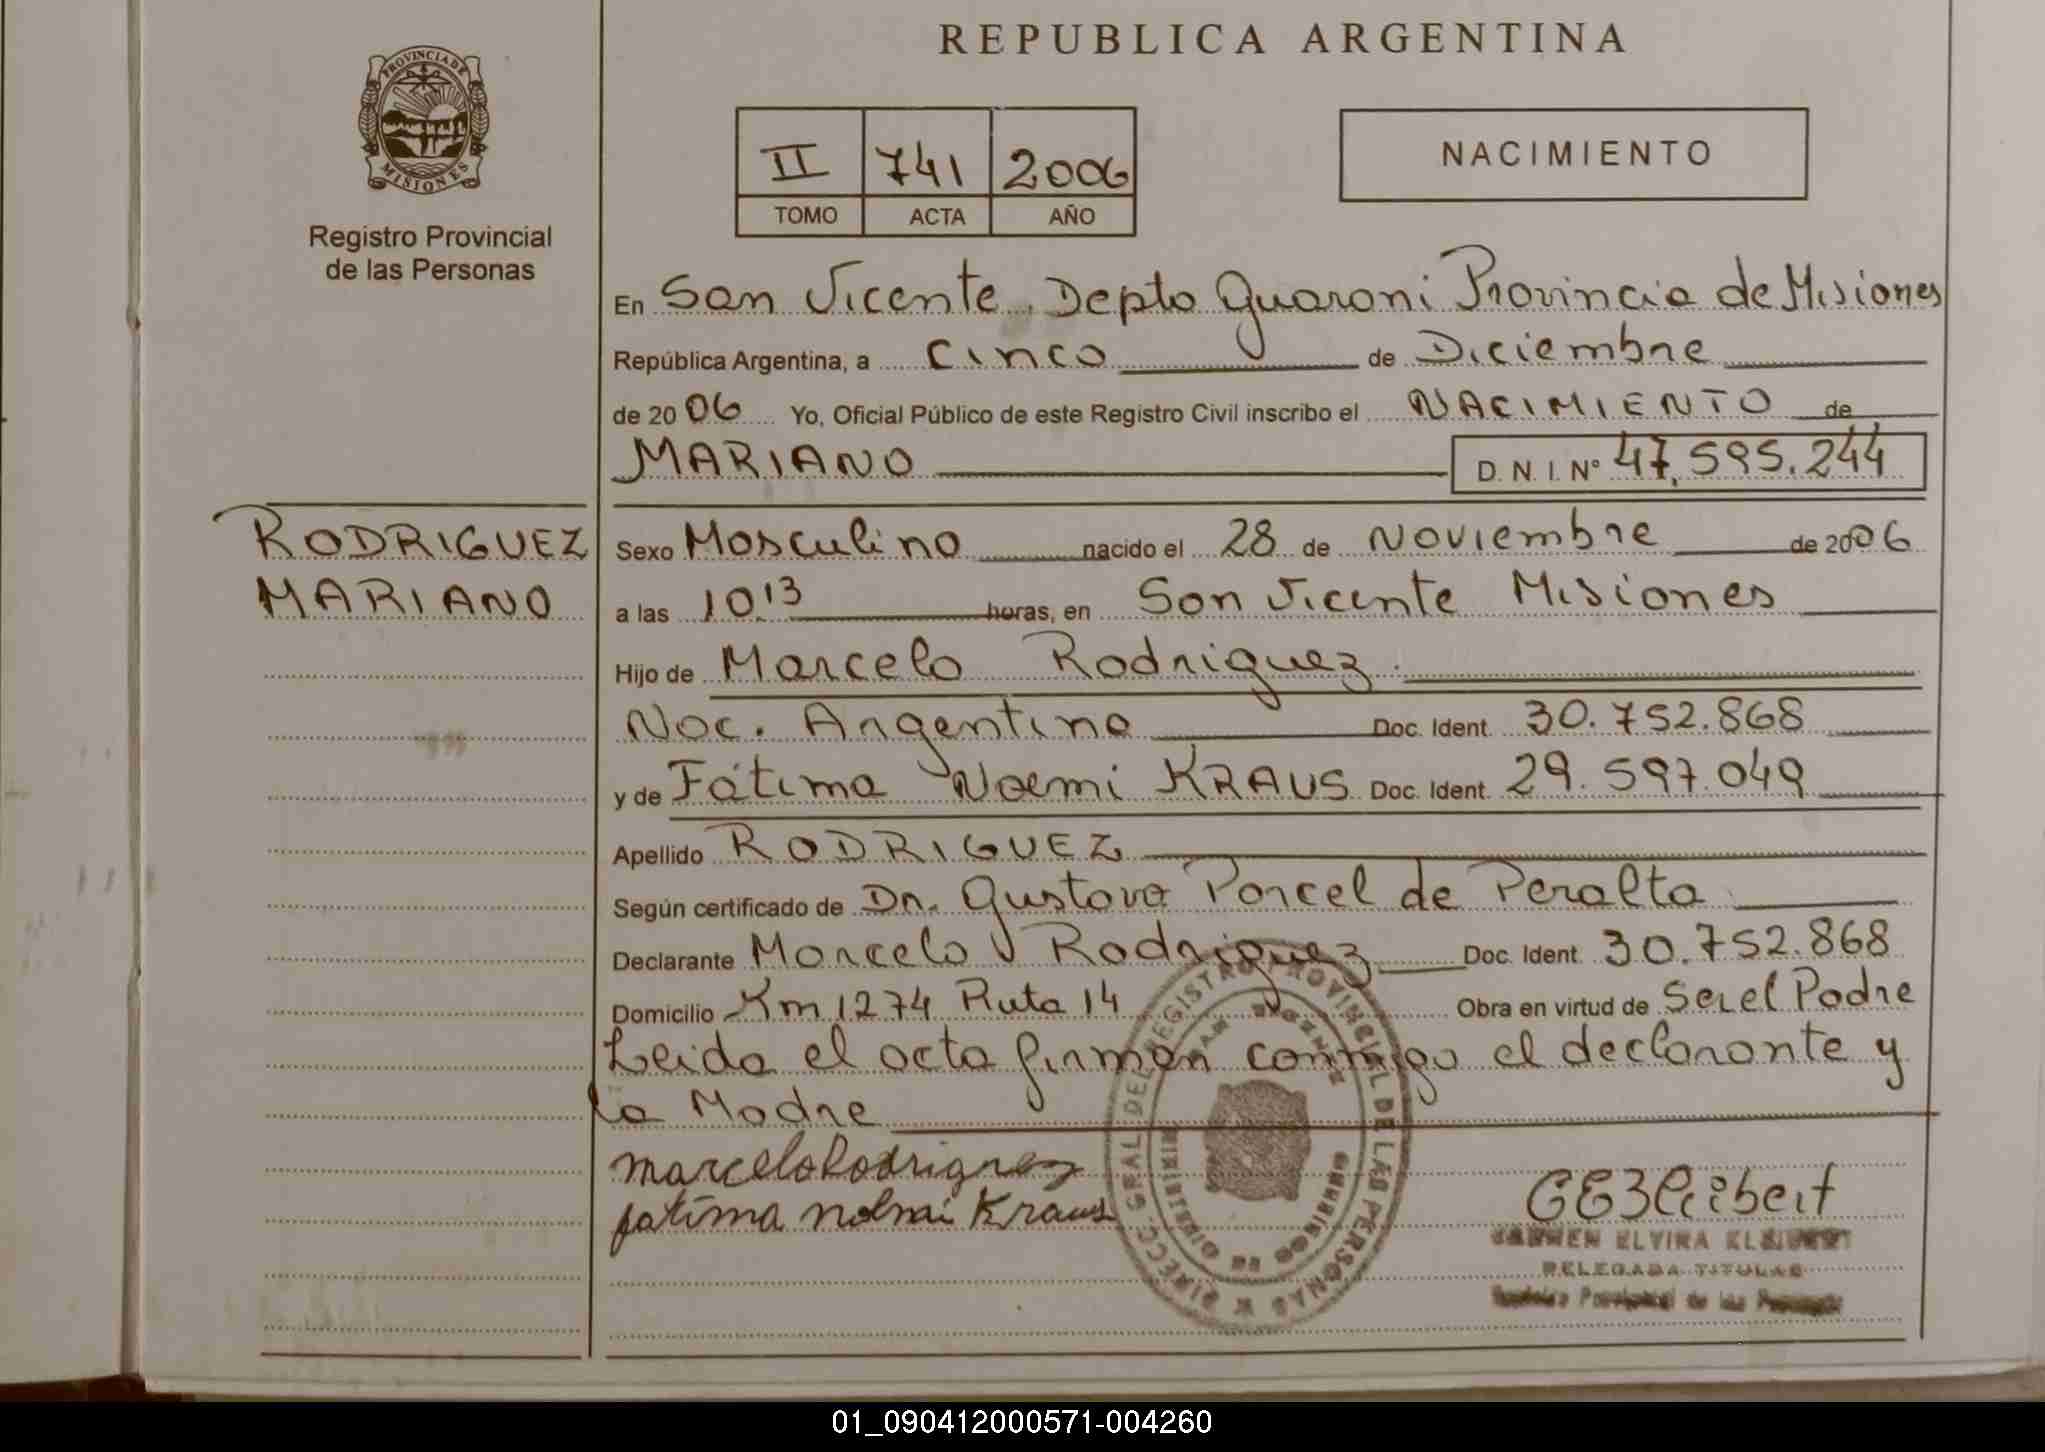 REPUBLICA ARGENTINA
PROVINCIA DE
MISIONES
Registro Provincial
de las Personas
II 741 2006
TOMO ACTA AÑO
NACIMIENTO
En San Vicente, Depto Guarani Provincia de Misiones
República Argentina, a cinco de Diciembre
de 2006 Yo, Oficial Público de este Registro Civil inscribo el NACIMIENTO de
MARIANO D.N.I. Nº 47.595.244
RODRIGUEZ
MARIANO
Sexo Masculino nacido el 28 de Noviembre de 2006
a las 10.13 horas, en San Vicente Misiones
Hijo de Marcelo Rodriguez
Nac. Argentina Doc. Ident. 30.752.868
y de Fátima Noemi KRAUS Doc. Ident. 29.597.049
Apellido RODRIGUEZ
Según certificado de Dr. Gustavo Porcel de Peralta
Declarante Marcelo Rodriguez Doc. Ident. 30.752.868
Domicilio Km 1274 Ruta 14 Obra en virtud de Ser el Padre
Leida el acta firman conmigo el declarante y
la Madre
marcelo Rodriguez
fatima Kraus
DIRECC. GRAL. DEL REGISTRO PROVINCIAL DE LAS PERSONAS
CARMEN ELVIRA KLEIBERT
DELEGADA TITULAR
Registro Provincial de las Personas
01_090412000571-004260